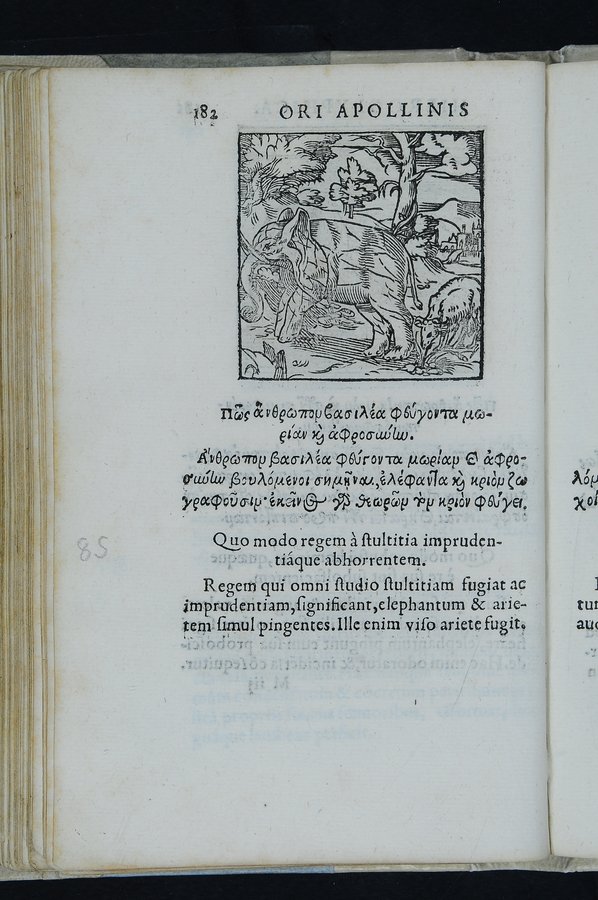 182 ORI APOLLINIS
Πῶς ἄνθρωπον βασιλέα φεύγοντα μω-
ρίαν καὶ ἀφροσύνην.
Ἄνθρωπον βασιλέα φεύγοντα μωρίαν καὶ ἀφρο-
σύνην βουλόμενοι σημῆναι, ἐλέφαντα καὶ κριὸν ζω
γραφοῦσιν· ἐκεῖνος γὰρ θεωρῶν τὸν κριὸν φεύγει.
85
Quo modo regem à ſtultitia impruden-
tiáque abhorrentem.
Regem qui omni ſtudio ſtultitiam fugiat ac
imprudentiam, ſignificant, elephantum & arie-
tem ſimul pingentes. Ille enim viſo ariete fugit.